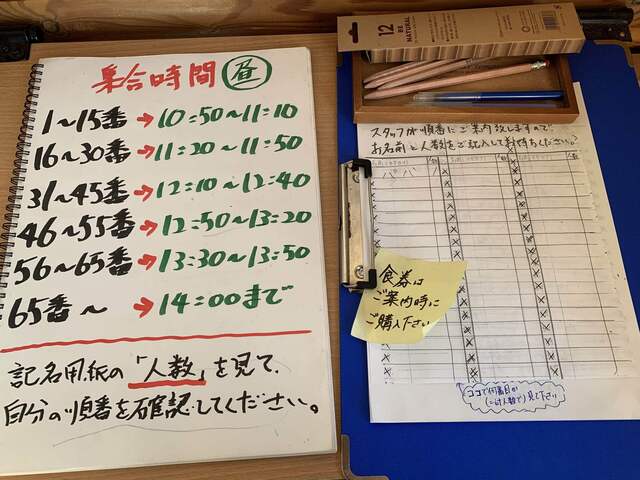 集合時間 昼
1~15番→10:50~11:10
16~30番→11:20~11:50
31~45番→12:10~12:40
46~55番→12:50~13:20
56~65番→13:30~13:50
65番~→14:00まで
記名用紙の「人数」を見て、
自分の順番を確認してください。
12
BE
NATURAL
スタッフが順番にご案内致しますので
お名前と人数をご記入してお待ちください。
パパ
食券は
ご案内時に
ご購入下さい
↑ココで何番目か
見て下さい